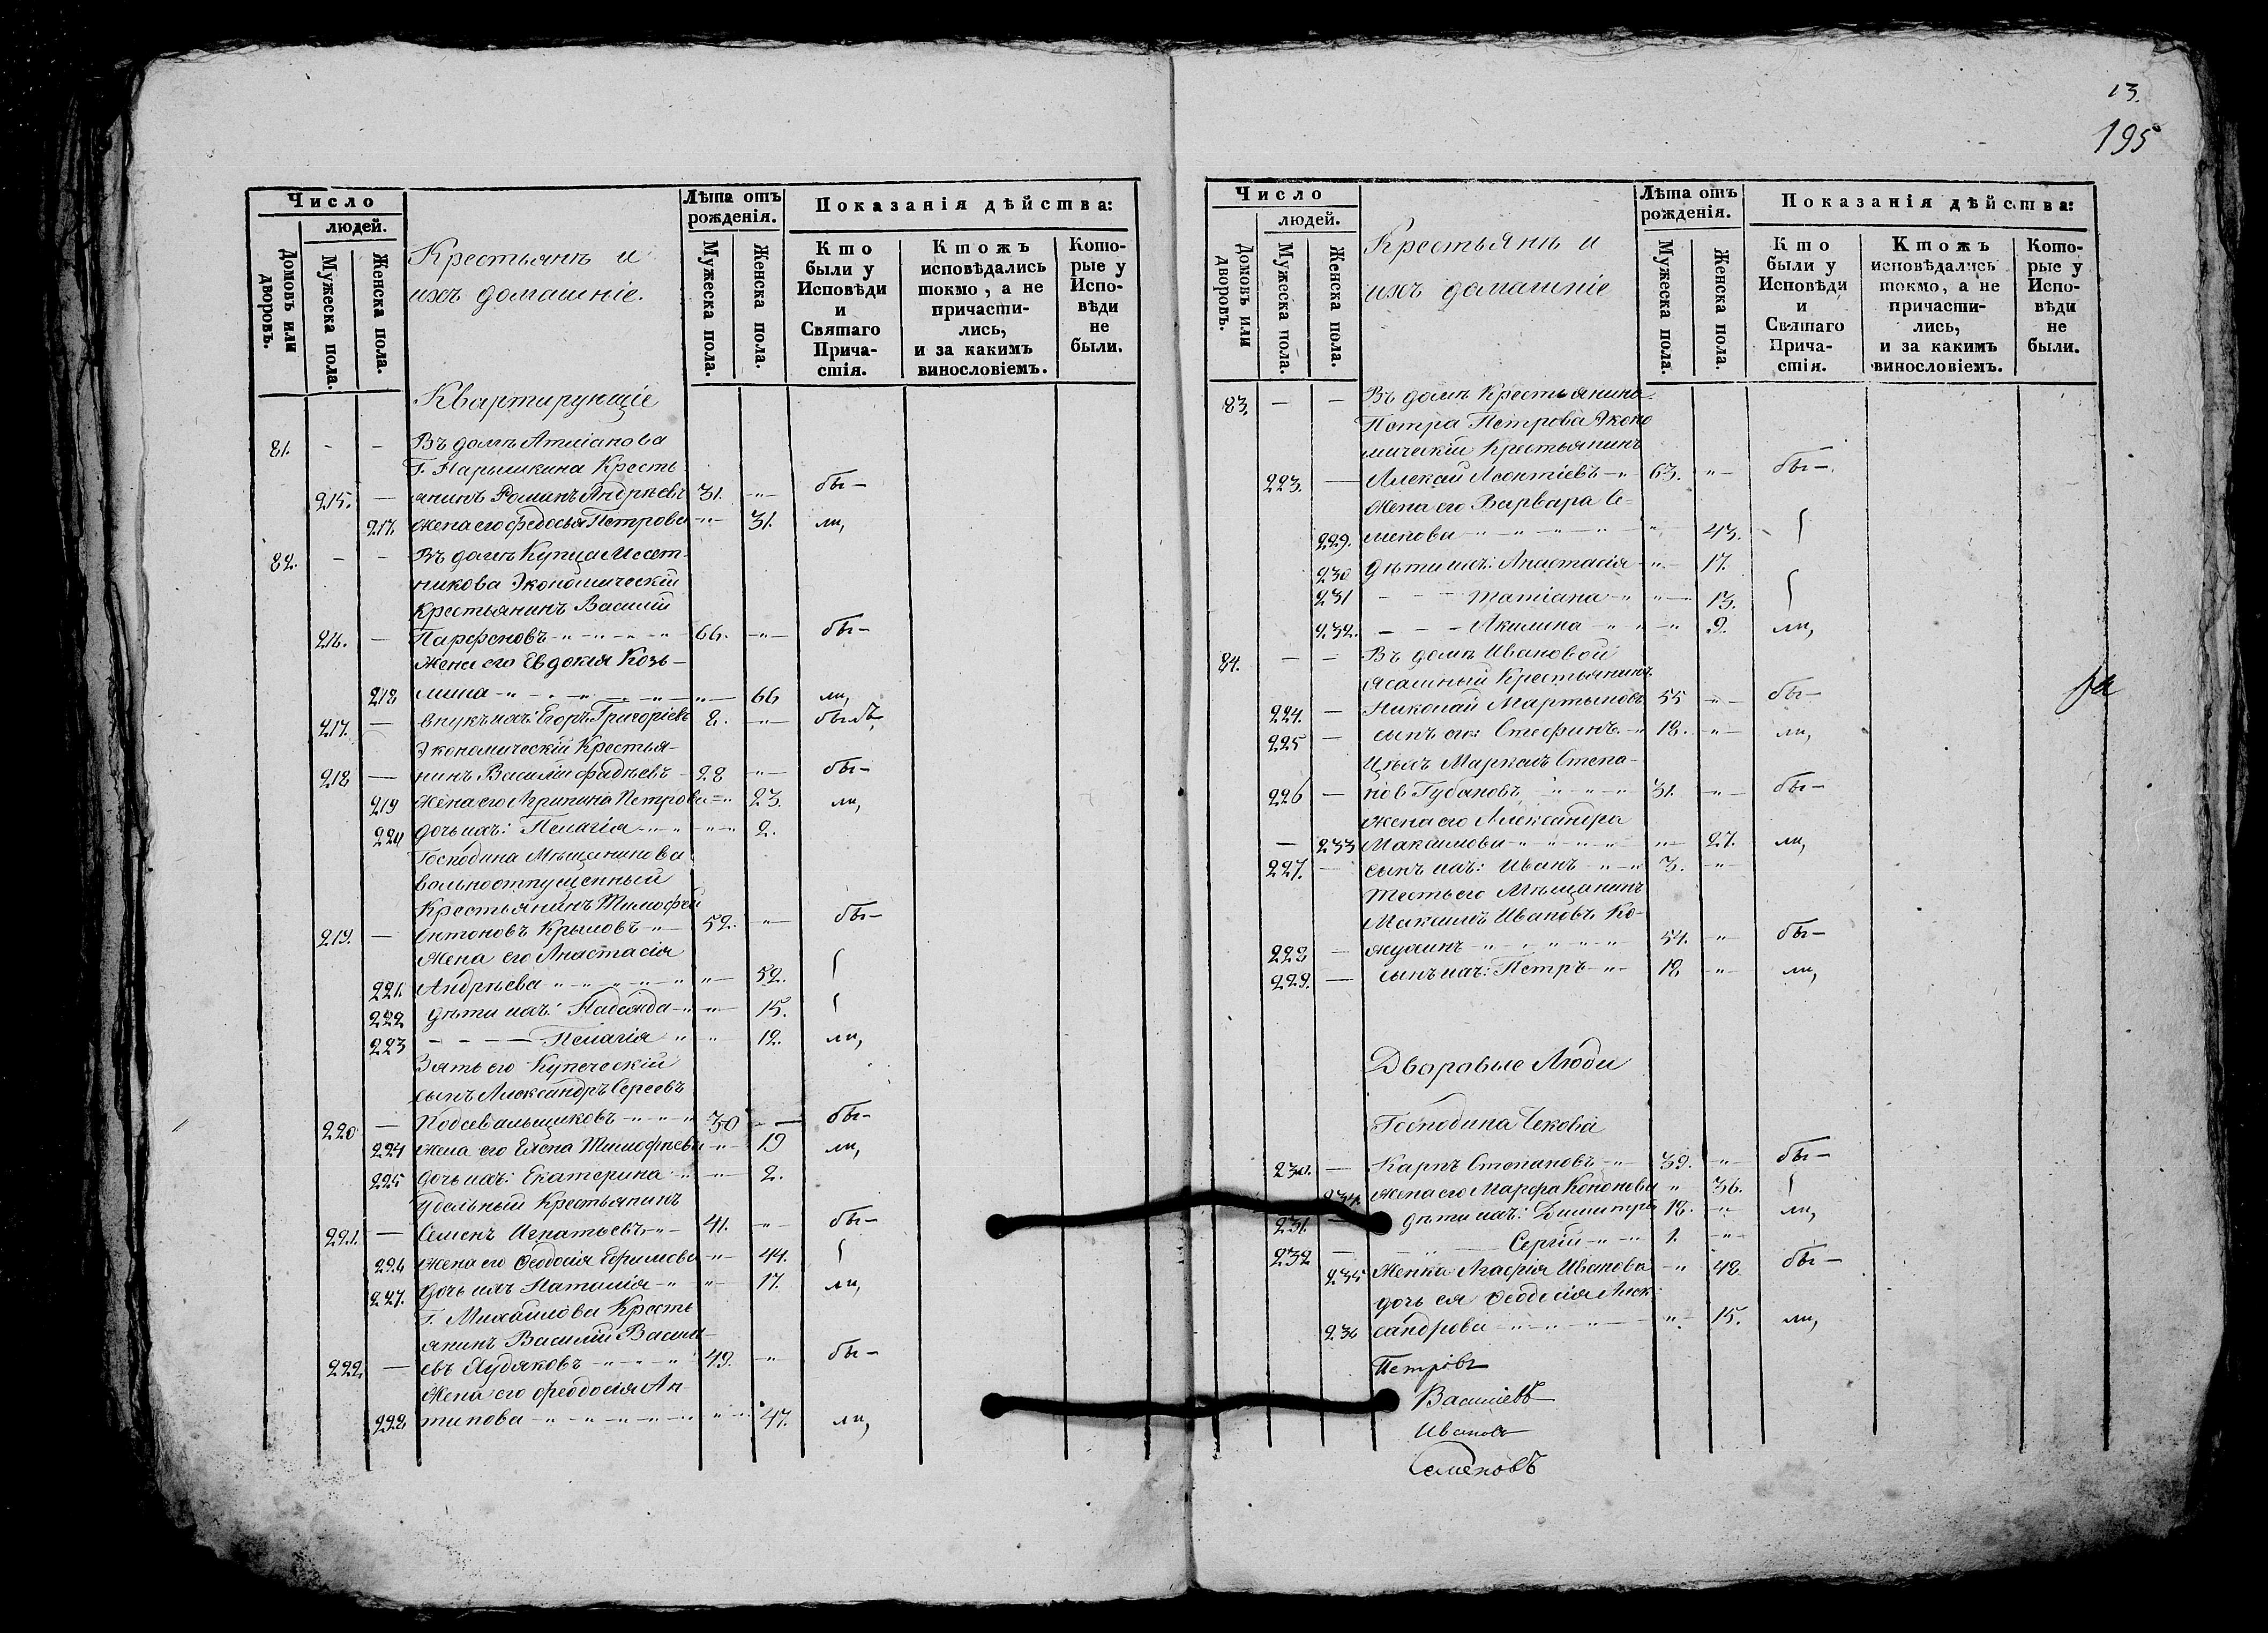 Число
людей.
Домовъ или дворовъ.
Мужеска пола.
Женска пола.
Крестьянъ и
ихъ домашніе.
Лѣта отъ
рожденія.
Мужеска пола.
Женска пола.
Показанія дѣйства:
Кто
были у
Исповѣди
и
Святаго
Прича-
стія.
Ктожъ
исповѣдались
токмо, а не
причасти-
лись,
и за какимъ
винословіемъ.
Кото-
рые у
Испо-
вѣди
не
были.
Квартирующіе
81. - - Въ домѣ
Г. Нарышкина Кресть
215. — янинъ Романъ Андрѣевъ 31. -"- бы-
217. Жена его Федосья Петрова -"- 31. ли,
82. - - Въ домѣ Купца
никова Экономическій
Крестьянинъ Василій
216. — Парфеновъ 66. -"- бы-
Жена его Евдокія Козь-
218 мина -"- 66 ли,
217. — внукъ ихъ: Егоръ Григорьевъ 8. -"- былъ
Экономическій Крестья-
218 — нинъ Василій Фадѣевъ 28 -"- бы-
219 Жена его Агрипина Петрова -"- 23. ли,
220 дочь ихъ: Пелагія -"- 2.
Господина Мѣщанинова
вольноотпущенный
Крестьянинъ Тимофей
219. — Антоновъ Крыловъ 52. -"- бы-
Жена его Анастасія
221. Андрѣева -"- 52.
222 дѣти ихъ: Надежда -"- 15.
223 - - - - Пелагія " 12. ли,
Зять его Купеческій
сынъ Александръ Сергеевъ
220 — Подсевальщиковъ 30 - - бы-
224 Жена его Елена Тимофѣева -"- 19 ли,
225 дочь ихъ: Екатерина -"- 2.
Удельный Крестьянинъ
221. — Семенъ Игнатьевъ 41. -"- бы-
226 Жена его Феодосія Ефимова -"- 44.
227. дочь ихъ Наталія -"- 17. ли,
Г. Михайлова Кресть
янинъ Василій Василь-
222. — евъ Худяковъ 49. -"- бы-
Жена его Феодосія Ан-
228 типова -"- 47. ли,
13.
195
Число
людей.
Домовъ или дворовъ.
Мужеска пола.
Женска пола.
Крестьянъ и
ихъ домашніе
Лѣта отъ
рожденія.
Мужеска пола.
Женска пола.
Показанія дѣйства:
Кто
были у
Исповѣди
и
Святаго
Прича-
стія.
Ктожъ
исповѣдались
токмо, а не
причасти-
лись,
и за какимъ
винословіемъ.
Кото-
рые у
Испо-
вѣди
не
были.
83. - - Въ домѣ Крестьянина
Петра Петрова Эконо
мическій Крестьянинъ
223. — Алексѣй Леонтіевъ 63. "- бы-
Жена его Варвара Се-
229. менова " 43.
230 Дѣти ихъ: Анастасія -"- 17.
231 - - - Татіана -"- 13.
232. - - - Акилина -"- 9. ли,
84. - - Въ домѣ Ивановой
Ясашный Крестьянинъ
224. — Николай Мартыновъ 55 -"- бы-
225 — сынъ его: Стефанъ 18. -"- ли,
Цехъ Маркелъ Степа-
226 — новъ Губановъ 31. -"- бы-
жена его Александра
— 233 Максимова -"- 27. ли,
227. — сынъ ихъ: Иванъ 3. -"-
Тесть его Мѣщанинъ
Михаилъ Ивановъ Ко-
228 — жухинъ 54. -"- бы-
229. — сынъ ихъ: Петръ 18 -"- ли,
Дворовые Люди
Господина Чекова
230. — Карпъ Степановъ 39. -"- бы-
234. Жена его Марфа Кононова " 36.
231. — дѣти ихъ: Димитрій 12. -"- ли,
232 — Сергій 1. -"-
235 Женка Агафія Иванова -" 42 бы-
дочь ея Феодосія Алек-
236 сандрова "- 15. ли,
Петровъ
Василіевъ
Ивановъ
Семеновъ